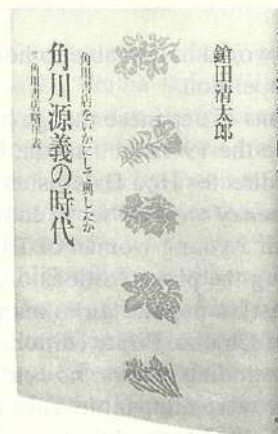 鎗田清太郎
角川書店をいかにして興したか
角川源義の時代
角川書店略年表